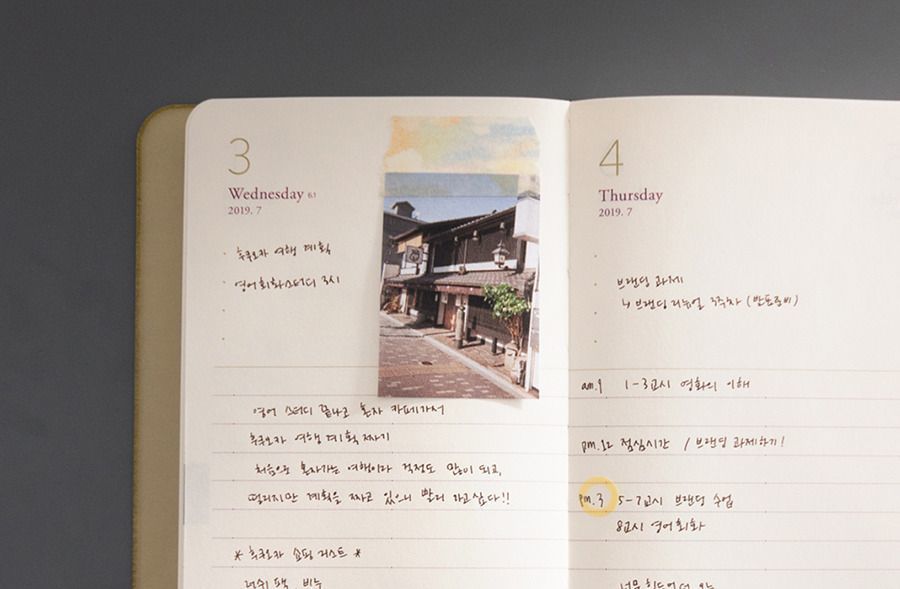 3
Wednesday 6.1
2019. 7
후쿠오카 여행 계획
영어회화스터디 3시
영어 스터디 끝나고 혼자 카페가서
후쿠오카 여행 계획 짜기
처음으로 혼자가는 여행이라 걱정도 많이 되고,
떨리지만 계획을 짜고 있으니 빨리 가고싶다!!
* 후쿠오카 쇼핑 리스트 *
비누
4
Thursday
2019. 7
브랜딩 과제
↳ 브랜딩 리뉴얼 3주차 (발표준비)
am.9 1-3교시 영화의 이해
pm.12 점심시간 / 브랜딩 과제하기!
pm.3 5-7교시 브랜딩 수업
8교시 영어회화